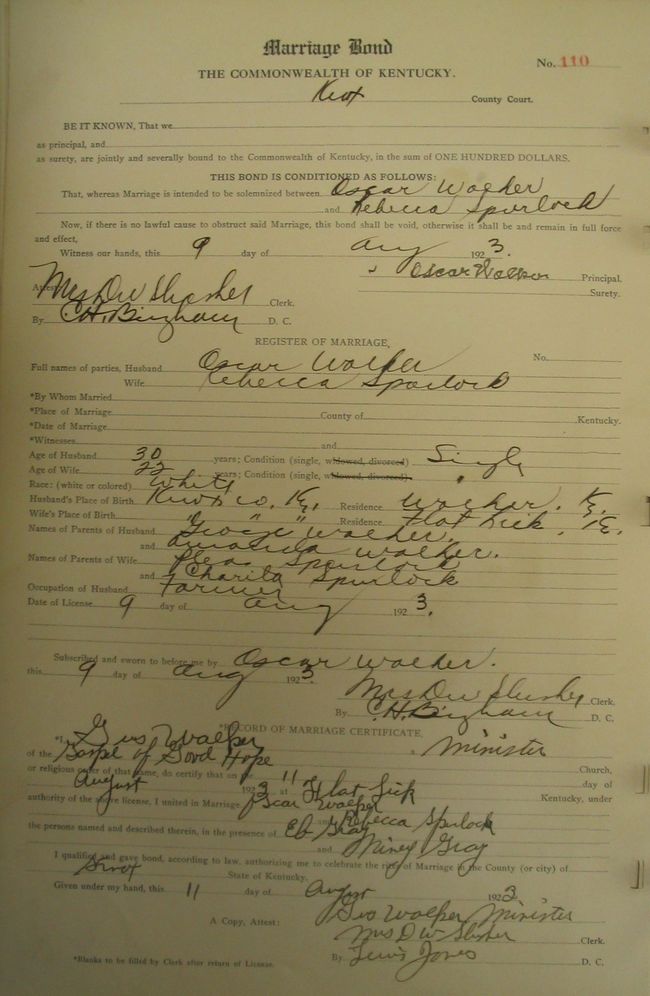 Marriage Bond
No. 110
THE COMMONWEALTH OF KENTUCKY.
Knox County Court.
BE IT KNOWN, That we
as principal, and
as surety, are jointly and severally bound to the Commonwealth of Kentucky, in the sum of ONE HUNDRED DOLLARS.
THIS BOND IS CONDITIONED AS FOLLOWS:
That, whereas Marriage is intended to be solemnized between Oscar Walker
and Rebecca Spurlock
Now, if there is no lawful cause to obstruct said Marriage, this bond shall be void, otherwise it shall be and remain in full force
and effect,
Witness our hands, this 9 day of Aug 1923.
Oscar Walker Principal.
Surety.
Attest Mrs D W Slusher Clerk.
By C.H. Bingham D. C.
REGISTER OF MARRIAGE,
Full names of parties, Husband Oscar Walker No.
Wife Rebecca Spurlock
*By Whom Married
*Place of Marriage County of Kentucky.
*Date of Marriage
*Witnesses and
Age of Husband 30 years; Condition (single, widowed, divorced) Single
Age of Wife 22 years; Condition (single, widowed, divorced) "
Race: (white or colored) White
Husband's Place of Birth Knox Co. Ky. Residence Walker. Ky.
Wife's Place of Birth " " " Residence Flat Lick. Ky.
Names of Parents of Husband George Walker.
and Amanda Walker.
Names of Parents of Wife Pleas Spurlock
and Charita Spurlock
Occupation of Husband Farmer
Date of License 9 day of Aug 1923.
Subscribed and sworn to before me by Oscar Walker.
this 9 day of Aug 1923.
Mrs D W Slusher Clerk.
By C.H. Bingham D. C.
*RECORD OF MARRIAGE CERTIFICATE,
*I, Geo Walker a Minister
of the Gospel of Good Hope Church,
or religious order of that name, do certify that on the 11 day of
August 1923 at Flat Lick Kentucky, under
authority of the above license, I united in Marriage Oscar Walker
and Rebecca Spurlock
the persons named and described therein, in the presence of Eb Gray
and Miney Gray
I qualified and gave bond, according to law, authorizing me to celebrate the rites of Marriage in the County (or city) of
Knox State of Kentucky.
Given under my hand, this 11 day of August 1923
Geo Walker Minister
A Copy, Attest: Mrs D W Slusher Clerk.
*Blanks to be filled by Clerk after return of License. By Lewis Jones D. C.